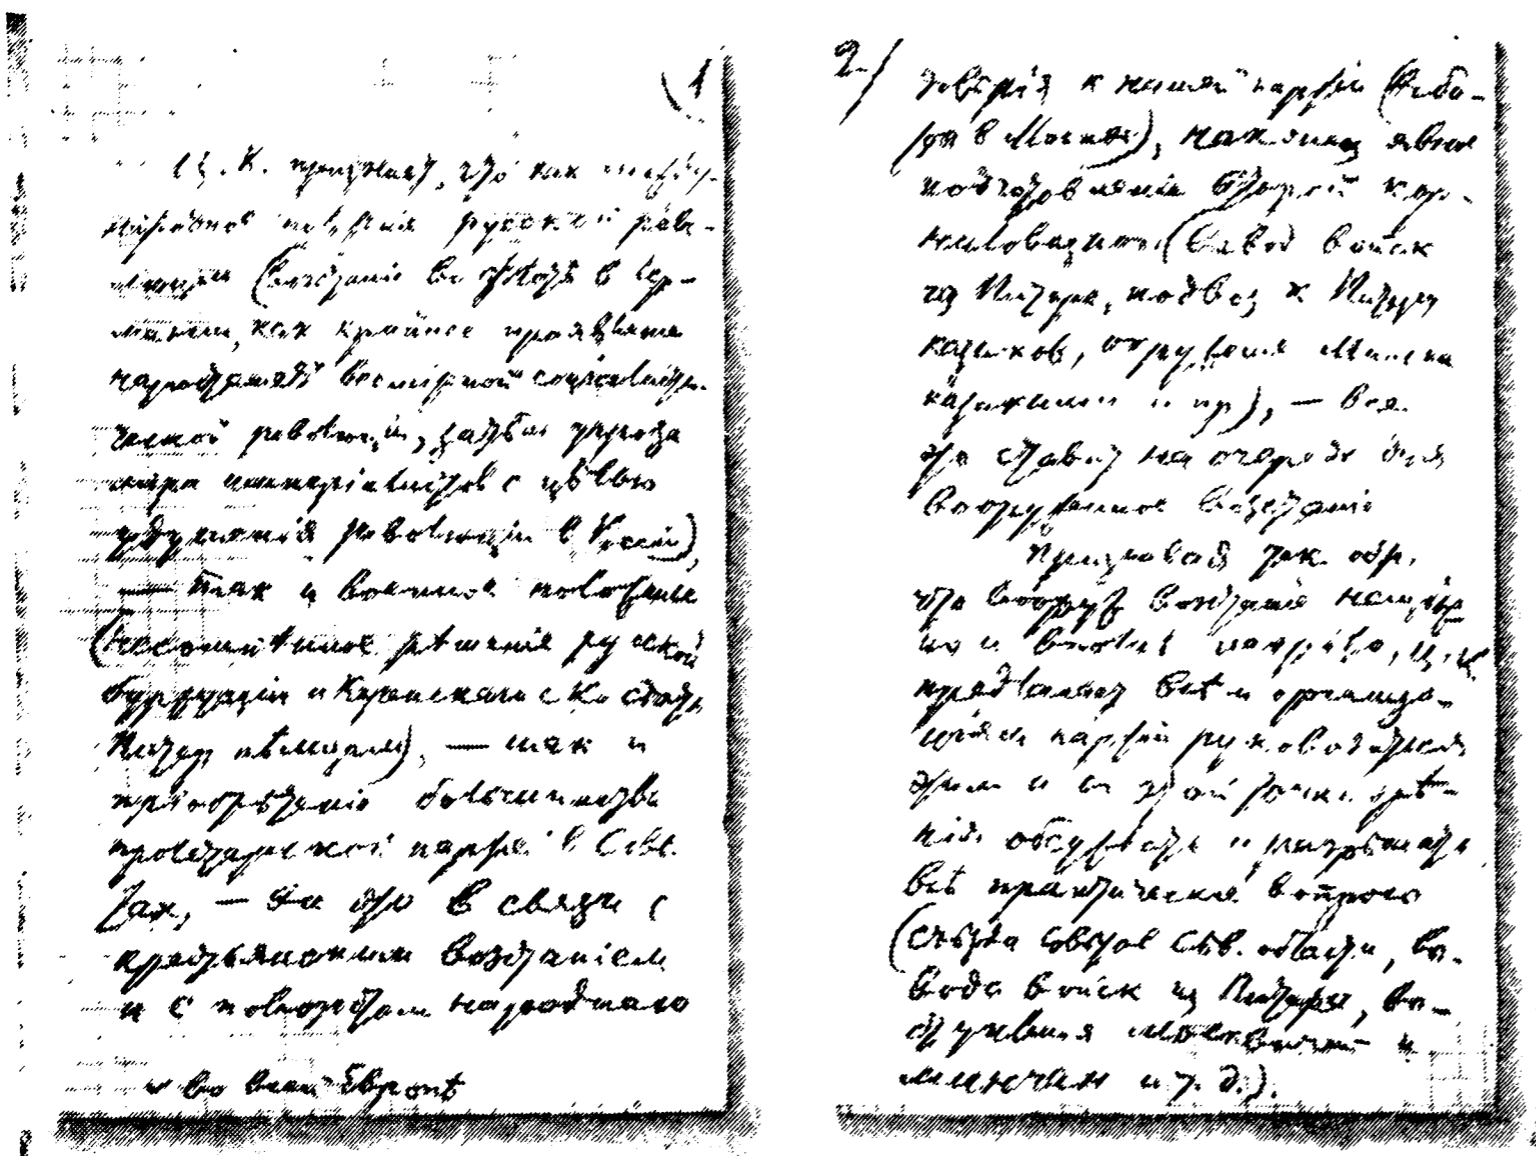 1
Ц.К. признает, что как между-
народное положенiя русской рево-
люцiи (возстанiе во флотѣ в Гер-
манiи, как крайнее проявленiе
наростанiя всемiрной соцiалисти-
ческой революцiи, затѣм угроза
мира имперiалистов с цѣлью
удушенiя революцiи в Россiи),
— так и военное положенiе
(несомнѣнное рѣшенiе русской
буржуазiи и Керенскаго с Ко сдать
Питер нѣмцам), — так и
прiобрѣтенiе большинства
пролетарской партiей в Совѣ-
тах, — все это в связи с
крестьянским возстанiем
и с поворотом народнаго
и во всей Европѣ
2/
довѣрiя к нашей партiи (выбо-
ры в Москвѣ), наконец явное
подготовленiе второй кор-
ниловщины (вывод войск
из Питера, подвоз к Питеру
казаков, окруженiе Минска
казаками и пр), — все
это ставит на очередь дня
вооруженное возстанiе
Признавая так. обр.,
что вооруж возстанiе неизбѣж-
но и вполнѣ назрѣло, Ц.К.
предлагает всѣм организа-
цiям партiи руководиться
этим и с этой точки зрѣ-
нiя обсуждать и разрѣшать
всѣ практическiе вопросы
(съѣзда совѣтов Сѣв. области, вы-
вода войск из Питера, вы-
ступленiя москвичей и
минчан и т. д.).